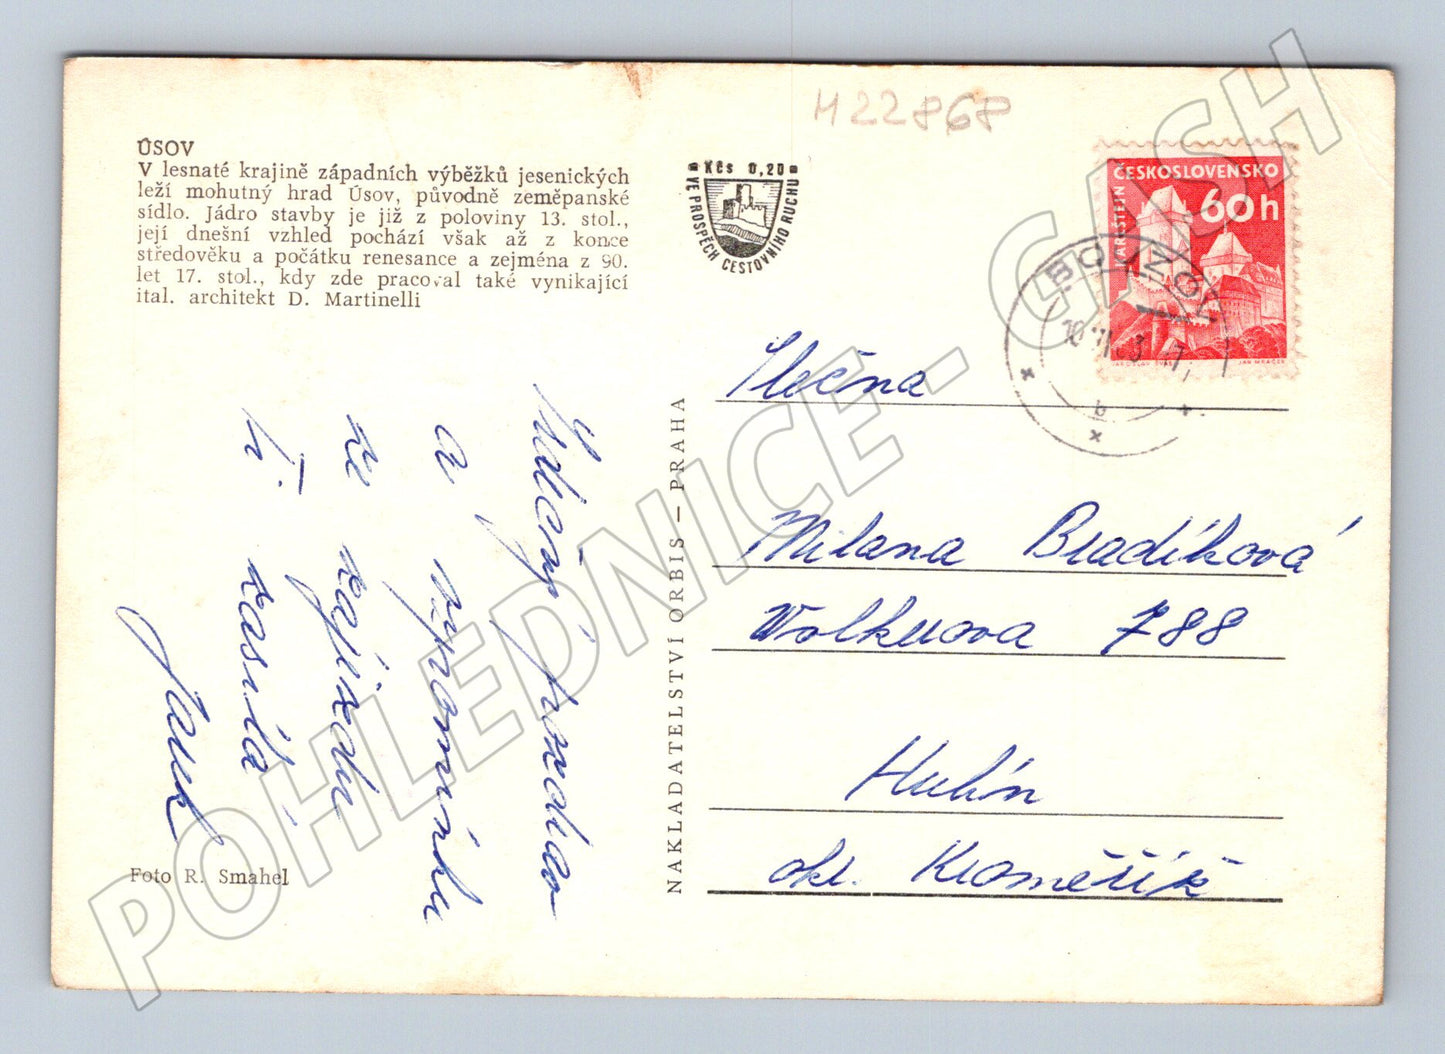 H22868
ÚSOV
V lesnaté krajině západních výběžků jesenických
leží mohutný hrad Úsov, původně zeměpanské
sídlo. Jádro stavby je již z poloviny 13. stol.,
její dnešní vzhled pochází však až z konce
středověku a počátku renesance a zejména z 90.
let 17. stol., kdy zde pracoval také vynikající
ital. architekt D. Martinelli
Kčs 0,20
VE PROSPĚCH CESTOVNÍHO RUCHU
ČESKOSLOVENSKO
60h
KARLŠTEJN
JAN MRÁČEK
b
Srdečný pozdrav
a vzpomínku
ze zájezdu
Ti zasílá
Foto R. Smahel
NAKLADATELSTVÍ ORBIS – PRAHA
Slečna
Milana Bradíková
Wolkrova 788
Hulín
okr. Kroměříž
POHLEDNICE - CASH